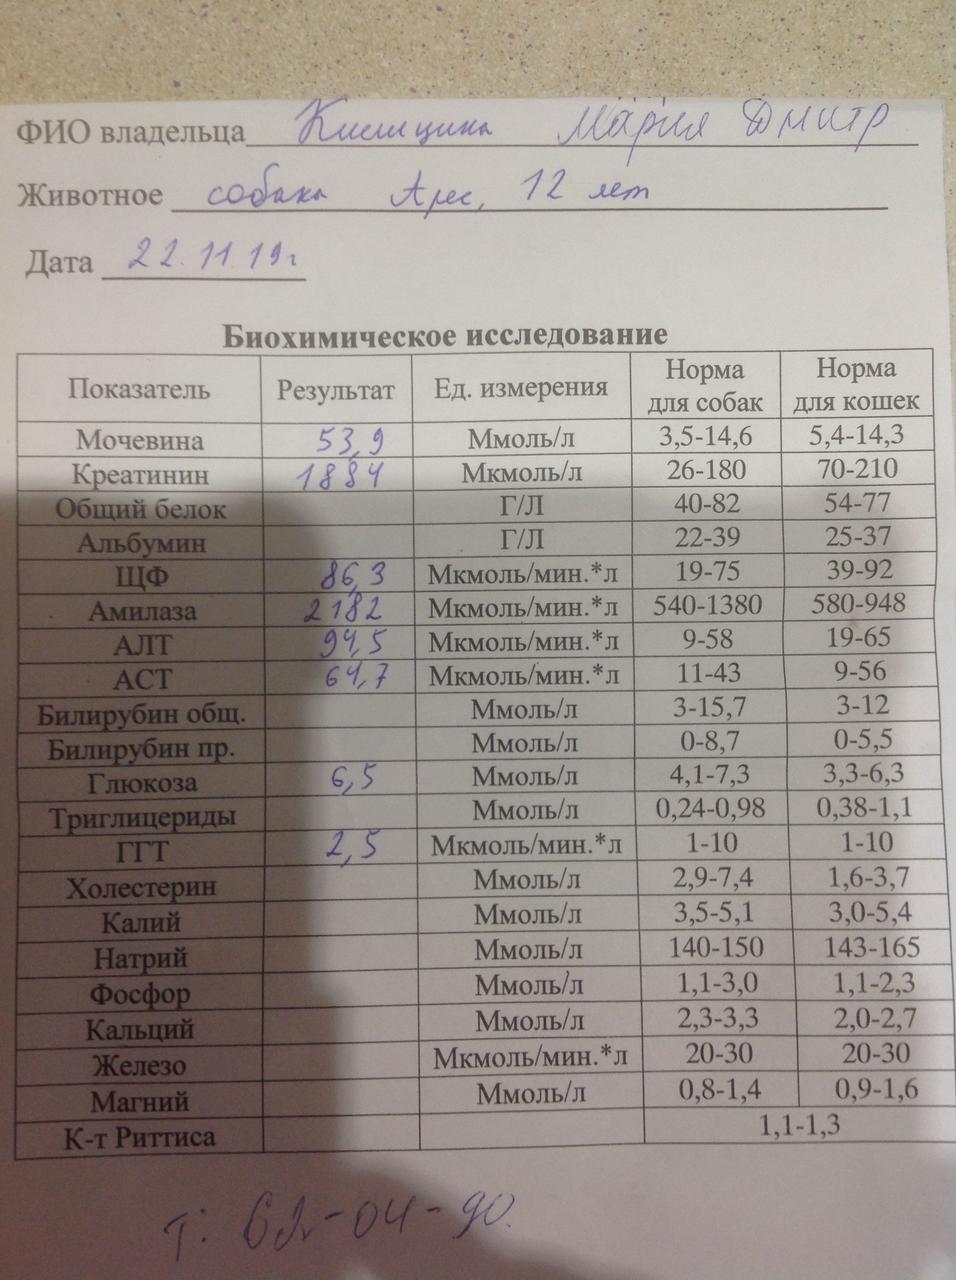 ФИО владельца Кислицина Мария Дмитр
Животное собака Арес, 12 лет
Дата 22.11.19г
Биохимическое исследование
Показатель Результат Ед. измерения Норма для собак Норма для кошек
Мочевина 53,9 Ммоль/л 3,5-14,6 5,4-14,3
Креатинин 1884 Мкмоль/л 26-180 70-210
Общий белок Г/Л 40-82 54-77
Альбумин Г/Л 22-39 25-37
ЩФ 86,3 Мкмоль/мин.*л 19-75 39-92
Амилаза 2182 Мкмоль/мин.*л 540-1380 580-948
АЛТ 94,5 Мкмоль/мин.*л 9-58 19-65
АСТ 64,7 Мкмоль/мин.*л 11-43 9-56
Билирубин общ. Ммоль/л 3-15,7 3-12
Билирубин пр. Ммоль/л 0-8,7 0-5,5
Глюкоза 6,5 Ммоль/л 4,1-7,3 3,3-6,3
Триглицериды Ммоль/л 0,24-0,98 0,38-1,1
ГГТ 2,5 Мкмоль/мин.*л 1-10 1-10
Холестерин Ммоль/л 2,9-7,4 1,6-3,7
Калий Ммоль/л 3,5-5,1 3,0-5,4
Натрий Ммоль/л 140-150 143-165
Фосфор Ммоль/л 1,1-3,0 1,1-2,3
Кальций Ммоль/л 2,3-3,3 2,0-2,7
Железо Мкмоль/мин.*л 20-30 20-30
Магний Ммоль/л 0,8-1,4 0,9-1,6
К-т Риттиса 1,1-1,3
т: 62-04-90.